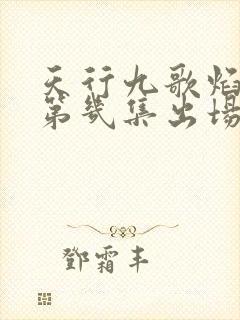 天行九歌焰
第幾集出場
鄧霜丰